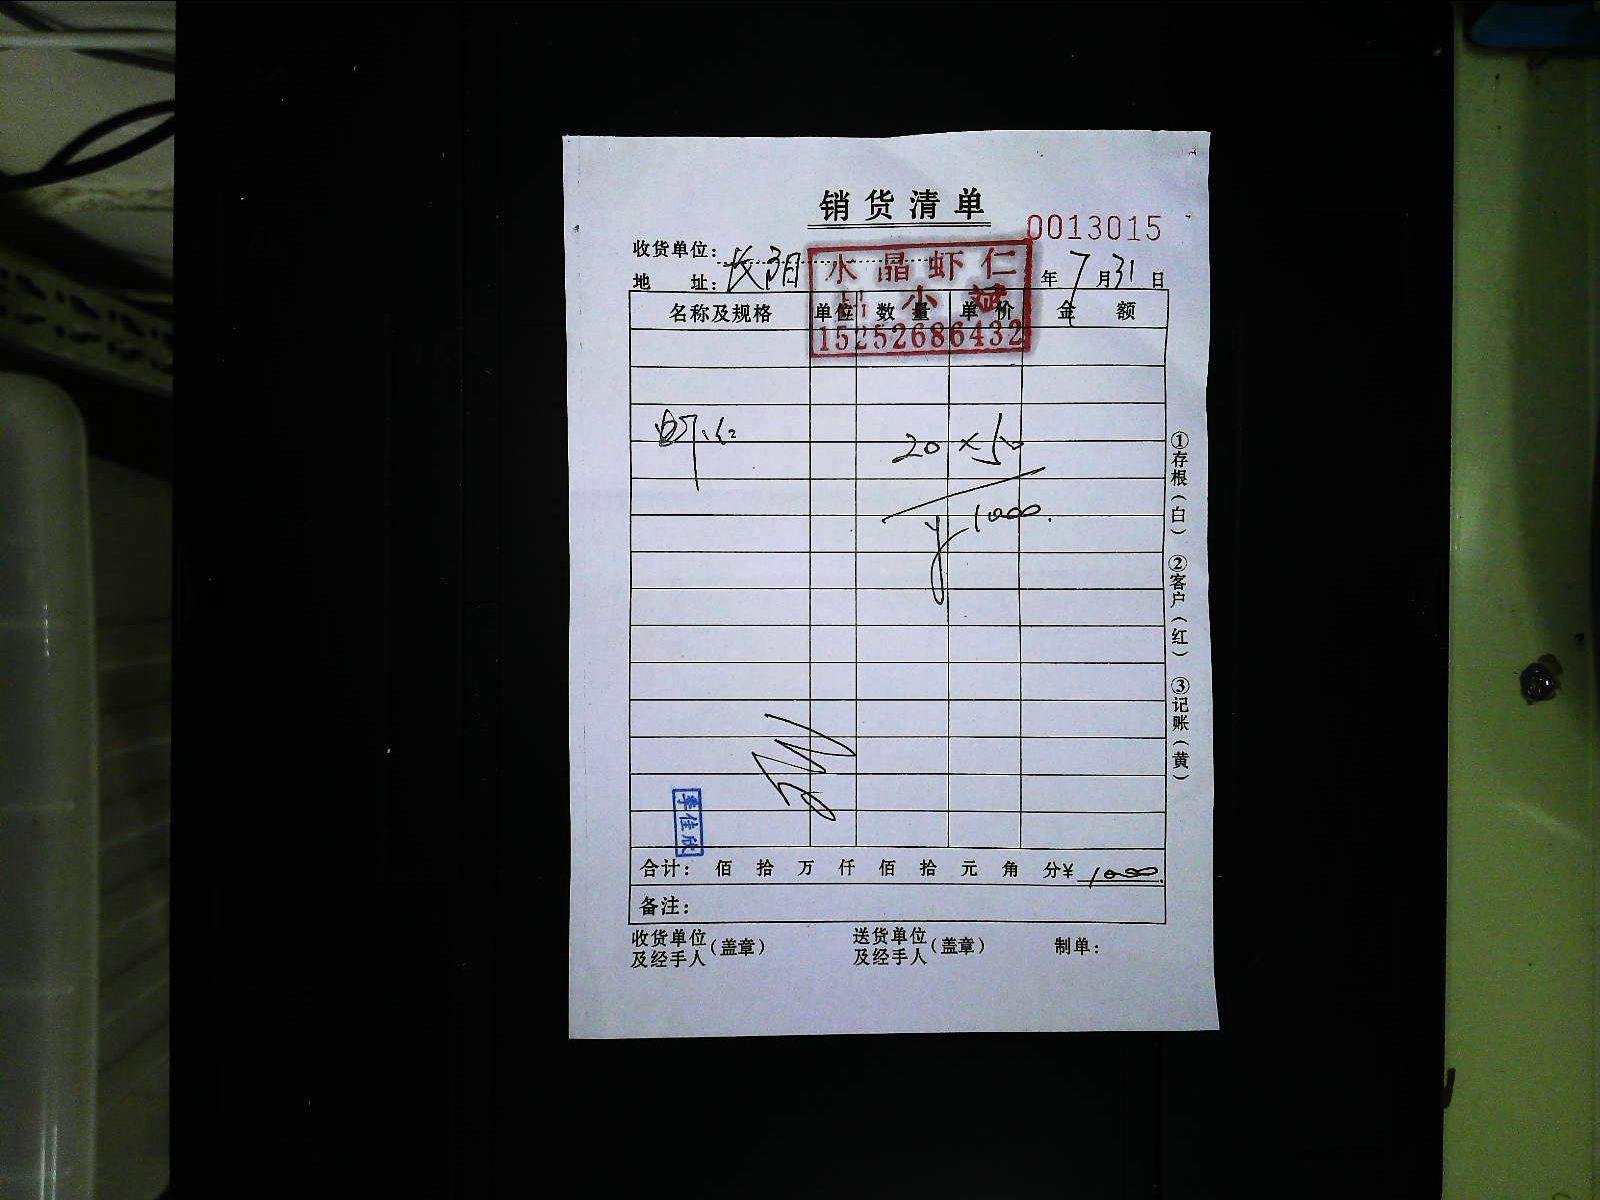 销货清单
0013015
收货单位：
地 址： 年 7 月 31 日
水晶虾仁
小斌
15252686432
名称及规格 单位 数量 单价 金额
虾仁 20 × 50
¥ 1000.
李佳欣
合计： 佰 拾 万 仟 佰 拾 元 角 分 ¥ 1000.
备注：
收货单位及经手人（盖章） 送货单位及经手人（盖章） 制单：
①存根（白） ②客户（红） ③记账（黄）